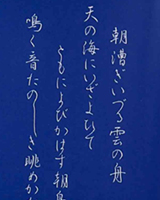 朝漕ぎいづる雲の舟
天の海にいざよひて
ともによびかはす朝鳥
鳴く音たのしき眺めか